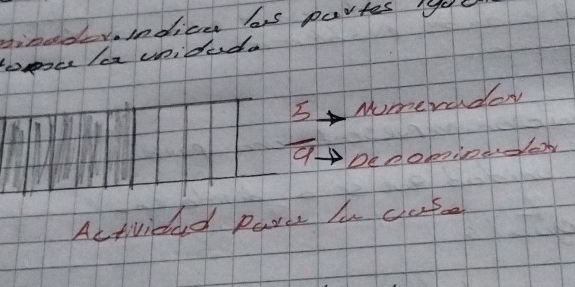 indica las partes
la unidad.
5 → Numerador
9 → Denominador
Actividad Para la casa